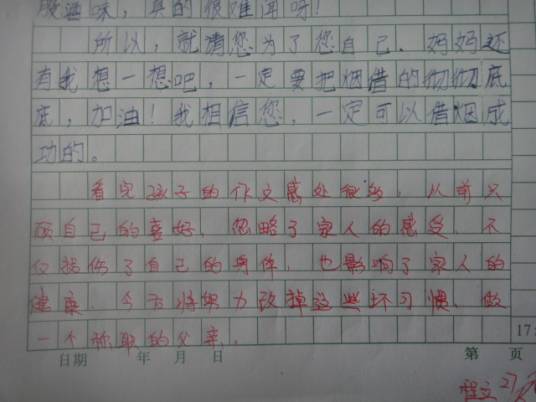 股烟味，真的很难闻呀！
所以，就请您为了您自己、妈妈还
有我想一想吧，一定要把烟借的彻彻底
底，加油！我相信您，一定可以借烟成
功的。
看完孩子的作文感处很多，从前只
顾自己的喜好，忽略了家人的感受，不
仅损伤了自己的身体，也影响了家人的
健康，今后将努力改掉这些坏习惯，做
一个称职的父亲。
17
日期 年 月 日 第 页
27